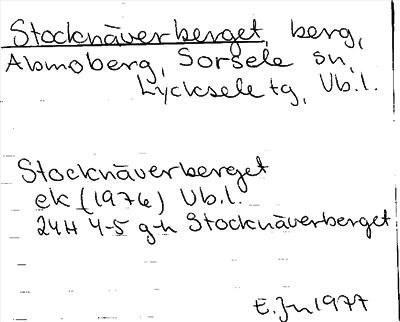 Stocknäverberget, berg,
Abmoberg, Sorsele sn,
Lycksele tg, Vb.l.
Stocknäverberget
ek (1976) Vb.l.
24H 4-5 g-h Stocknäverberget
E. Jn 1977